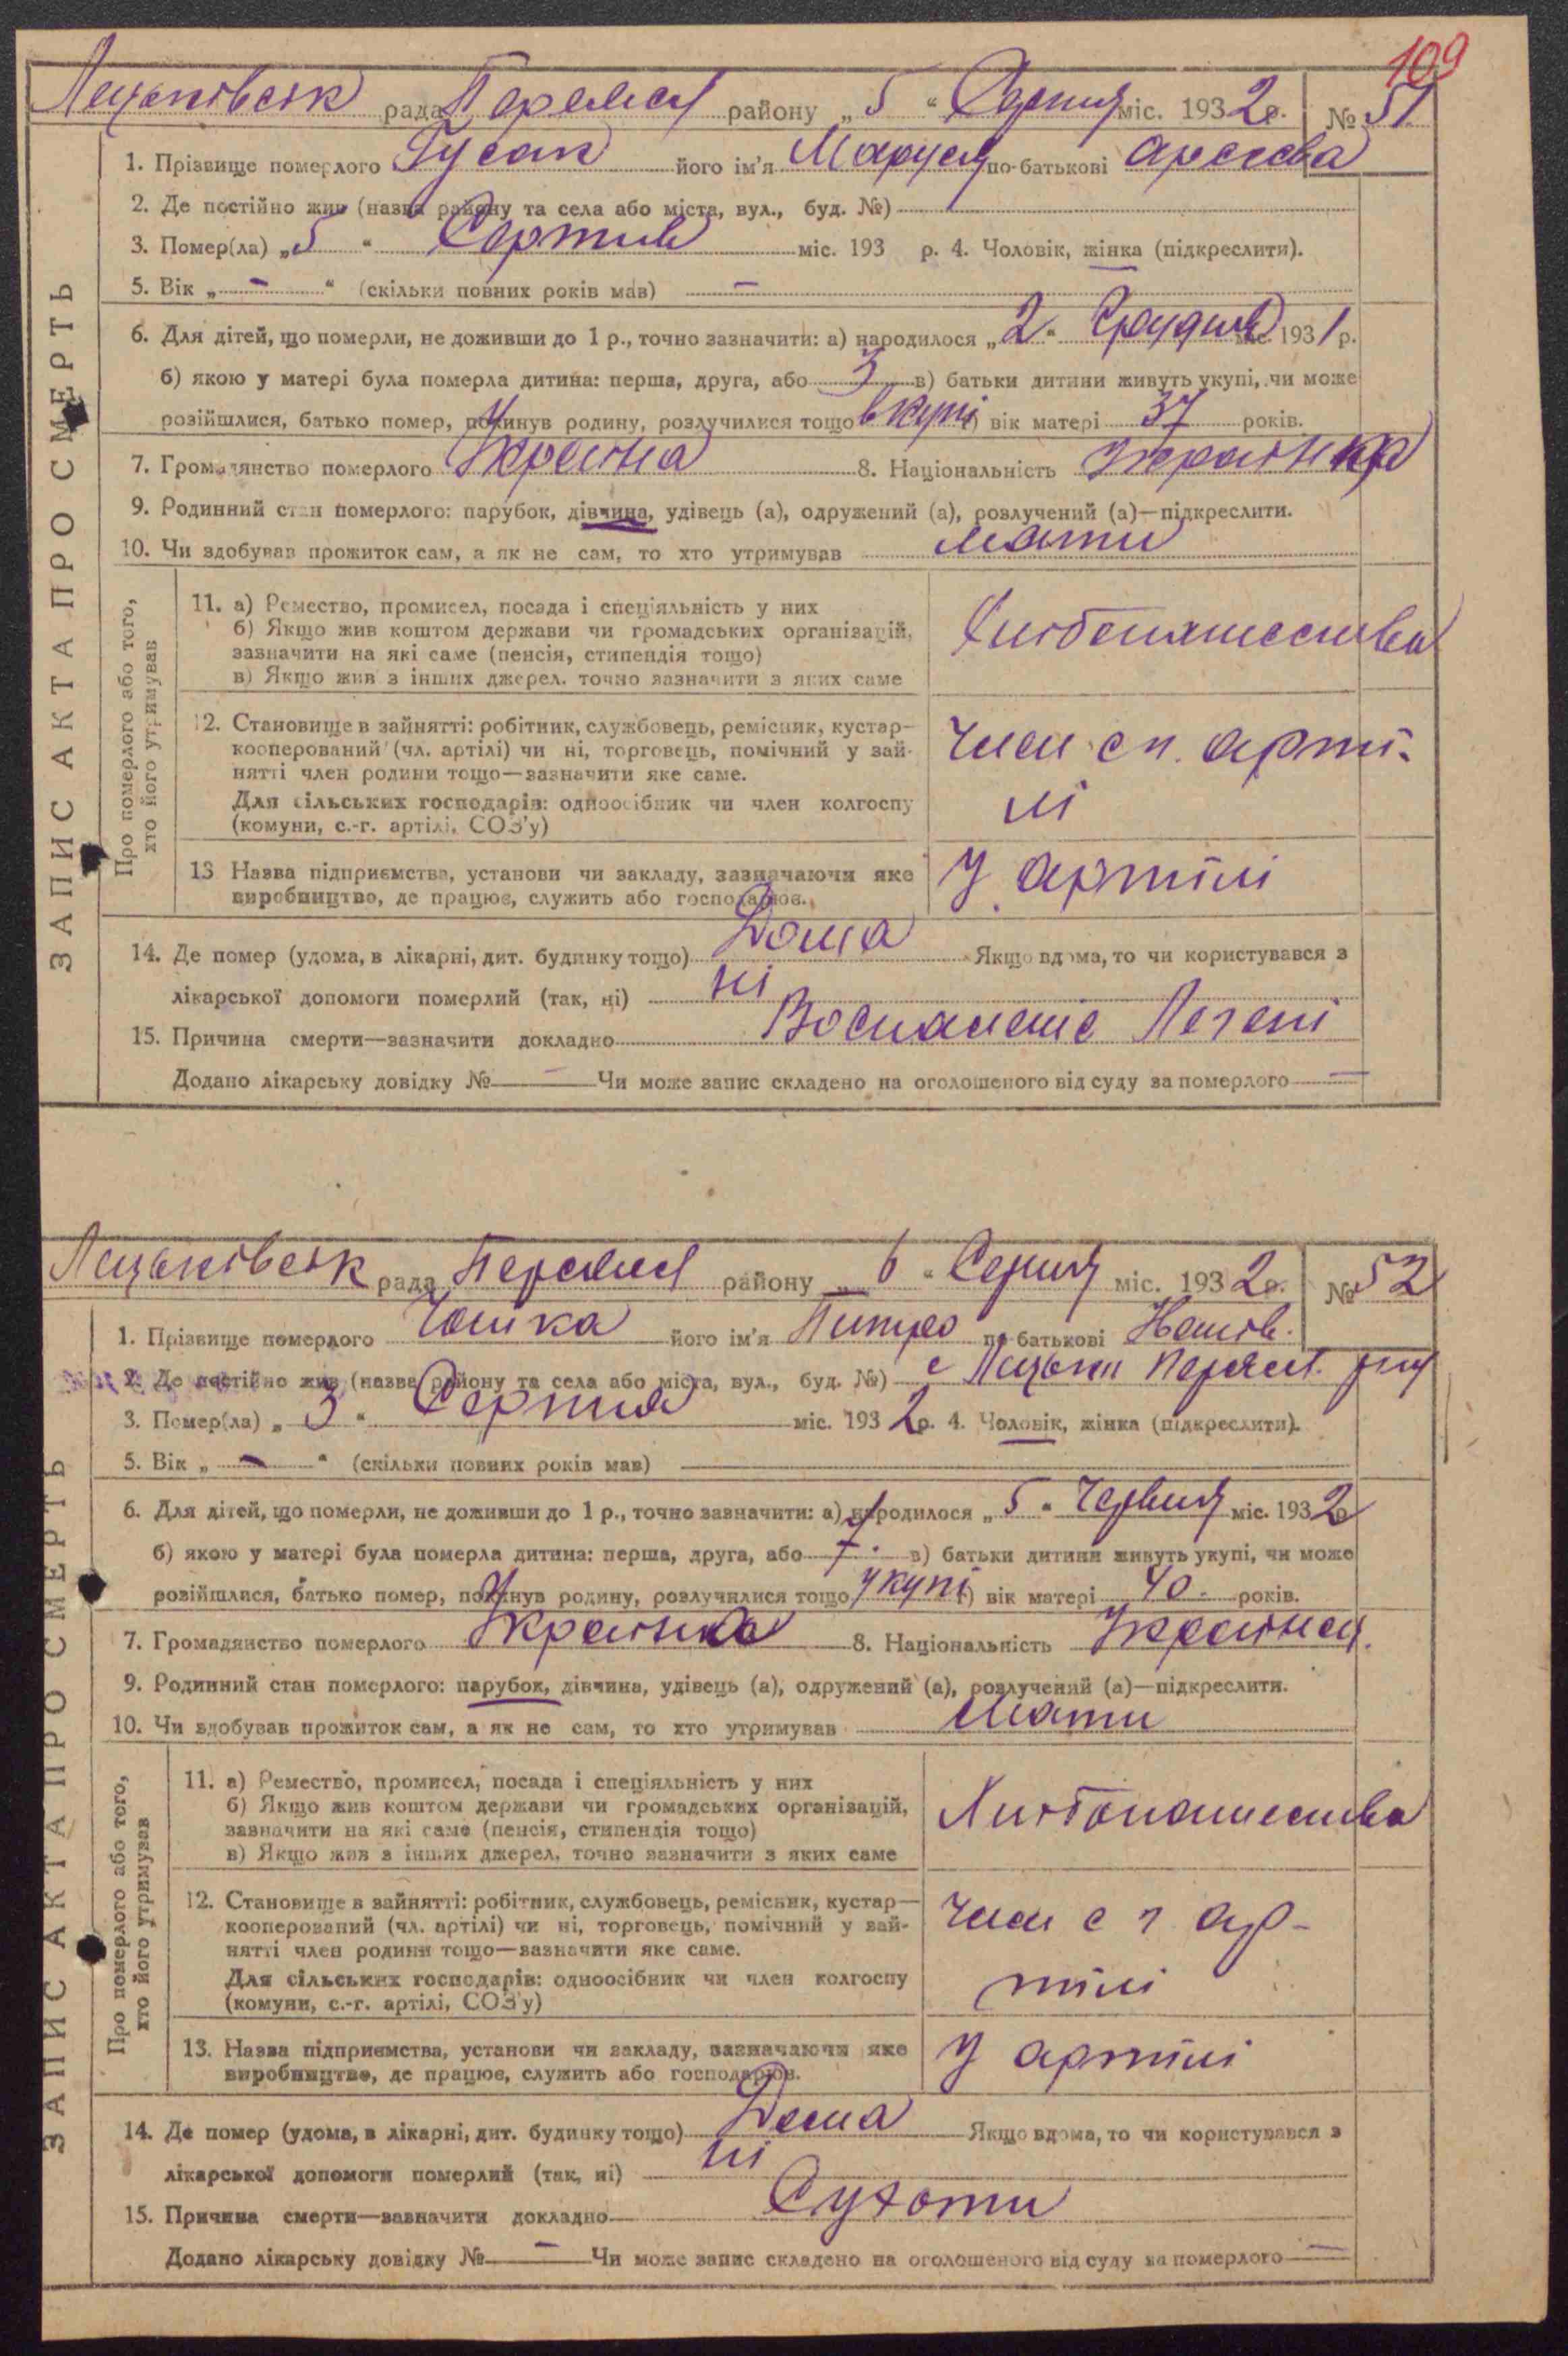 109
Лецьківськ рада Переясл району „ 5 “ Серпня міс. 1932 р. № 51
1. Прізвище померлого Гусак його ім'я Маруся по-батькові
2. Де постійно жив (назва району та села або міста, вул., буд. №)
3. Помер(ла) „ 5 “ Серпня міс. 193 р. 4. Чоловік, жінка (підкреслити).
5. Вік „ – “ (скільки повних років мав) –
6. Для дітей, що померли, не доживши до 1 р., точно зазначити: а) народилося „ 2 “ Грудня міс. 1931 р.
б) якою у матері була померла дитина: перша, друга, або 3 в) батьки дитини живуть укупі, чи може
розійшлися, батько помер, покинув родину, розлучилися тощо вкупі г) вік матері 37 років.
7. Громадянство померлого Україна 8. Національність Українка
9. Родинний стан померлого: парубок, дівчина, удівець (а), одружений (а), розлучений (а)—підкреслити.
10. Чи здобував прожиток сам, а як не сам, то хто утримував мати
ЗАПИС АКТА ПРО СМЕРТЬ
Про померлого або того,
хто його утримував
11. а) Ремество, промисел, посада і спеціяльність у них
б) Якщо жив коштом держави чи громадських організацій,
зазначити на які саме (пенсія, стипендія тощо)
в) Якщо жив з інших джерел, точно зазначити з яких саме
Хлібопашества
12. Становище в зайнятті: робітник, службовець, ремісник, кустар—
кооперований (чл. артілі) чи ні, торговець, помічний у зай-
нятті член родини тощо—зазначити яке саме.
Для сільських господарів: одноосібник чи член колгоспу
(комуни, с.-г. артілі, СОЗ'у)
Член с г. арті-
лі
13 Назва підприємства, установи чи закладу, зазначаючи яке
виробництво, де працює, служить або господарює.
У артілі
14. Де помер (удома, в лікарні, дит. будинку тощо) Дома Якщо вдома, то чи користувався з
лікарської допомоги померлий (так, ні) ні
15. Причина смерти—зазначити докладно Воспаленіє Легені
Додано лікарську довідку № – Чи може запис складено на оголошеного від суду за померлого –
Лецьківськ рада Переясл району „ 6 “ Серпня міс. 1932 р. № 52
1. Прізвище померлого його ім'я Питро по батькові
2. Де постійно жив (назва району та села або міста, вул., буд. №) с Лецьки Переясл. р-ну
3. Помер(ла) „ 3 “ Серпня міс. 1932 р. 4. Чоловік, жінка (підкреслити).
5. Вік „ – “ (скільки повних років мав)
6. Для дітей, що померли, не доживши до 1 р., точно зазначити: а) народилося „ 5 “ Червня міс. 1932 р
б) якою у матері була померла дитина: перша, друга, або 7. в) батьки дитини живуть укупі, чи може
розійшлися, батько помер, покинув родину, розлучилися тощо укупі г) вік матері 40 років.
7. Громадянство померлого 8. Національність
9. Родинний стан померлого: парубок, дівчина, удівець (а), одружений (а), розлучений (а)—підкреслити.
10. Чи здобував прожиток сам, а як не сам, то хто утримував мати
ЗАПИС АКТА ПРО СМЕРТЬ
Про померлого або того,
хто його утримував
11. а) Ремество, промисел, посада і спеціяльність у них
б) Якщо жив коштом держави чи громадських організацій,
зазначити на які саме (пенсія, стипендія тощо)
в) Якщо жив з інших джерел, точно зазначити з яких саме
Хлібопашества
12. Становище в зайнятті: робітник, службовець, ремісник, кустар—
кооперований (чл. артілі) чи ні, торговець, помічний у зай-
нятті член родини тощо—зазначити яке саме.
Для сільських господарів: одноосібник чи член колгоспу
(комуни, с.-г. артілі, СОЗ'у)
Член с г ар-
тілі
13. Назва підприємства, установи чи закладу, зазначаючи яке
виробництво, де працює, служить або господарює.
У артілі
14. Де помер (удома, в лікарні, дит. будинку тощо) Дома Якщо вдома, то чи користувався з
лікарської допомоги померлий (так, ні) ні
15. Причина смерти—зазначити докладно Сухоти
Додано лікарську довідку № – Чи може запис складено на оголошеного від суду за померлого –